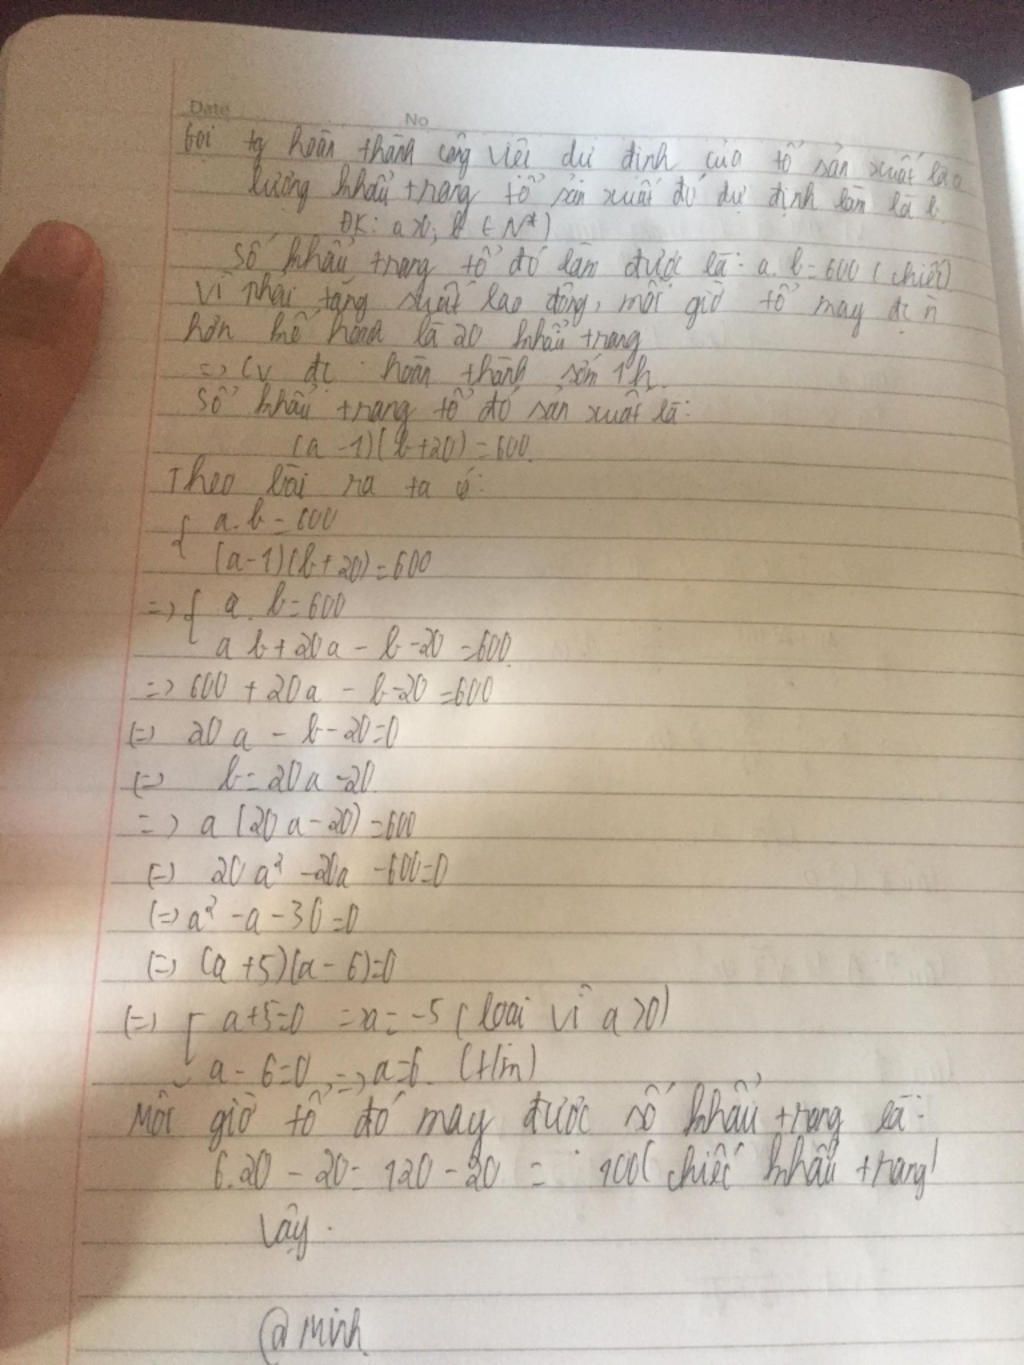 Date No
Gọi tg hoàn thành công việc dự định của tổ sản xuất là a
lượng khẩu trang tổ sản xuất đó dự định làm là b
ĐK: a>0; b ∈ N*)
Số khẩu trang tổ đó làm được là: a.b=600 (chiếc)
Vì phải tăng suất lao động, mỗi giờ tổ may đc n
hơn kế hoạch là 20 khẩu trang
=> CV đc hoàn thành sớm 1h.
Số khẩu trang tổ đó sản xuất là:
(a-1)(b+20)=600.
Theo bài ra ta có:
{ a.b=600
(a-1)(b+20)=600
=> { a.b=600
ab+20a-b-20=600.
=> 600+20a-b-20=600
(=) 20a-b-20=0
(=) b=20a-20.
=> a(20a-20)=600
(=) 20a²-20a-600=0
(=) a²-a-30=0
(=) (a+5)(a-6)=0
(=) [ a+5=0 => a=-5 (loại vì a>0)
a-6=0 => a=6. (t/m)
Mỗi giờ tổ đó may được số khẩu trang là:
6.20-20=120-20=100(chiếc khẩu trang)
Vậy.
@Minh